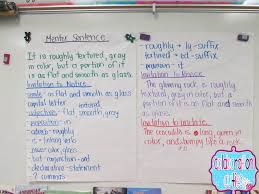 Mentor Sentence
It is roughly textured, gray
in color, but a portion of it
is as flat and smooth as glass.
Invitation to Notice
simile - as flat and smooth as glass
capital letter
adjectives - flat, smooth
preposition - in
adverb - roughly
is - verb
period
color, glass
but - conjunction - and
2 commas
roughly → ly - suffix
textured → ed - suffix
The glowing rock is roughly
textured, gray in color, but a
portion of it is as flat
and smooth as glass.
Invitation to Imitate
The crocodile is long, green in
color, and bumpy like a rock.